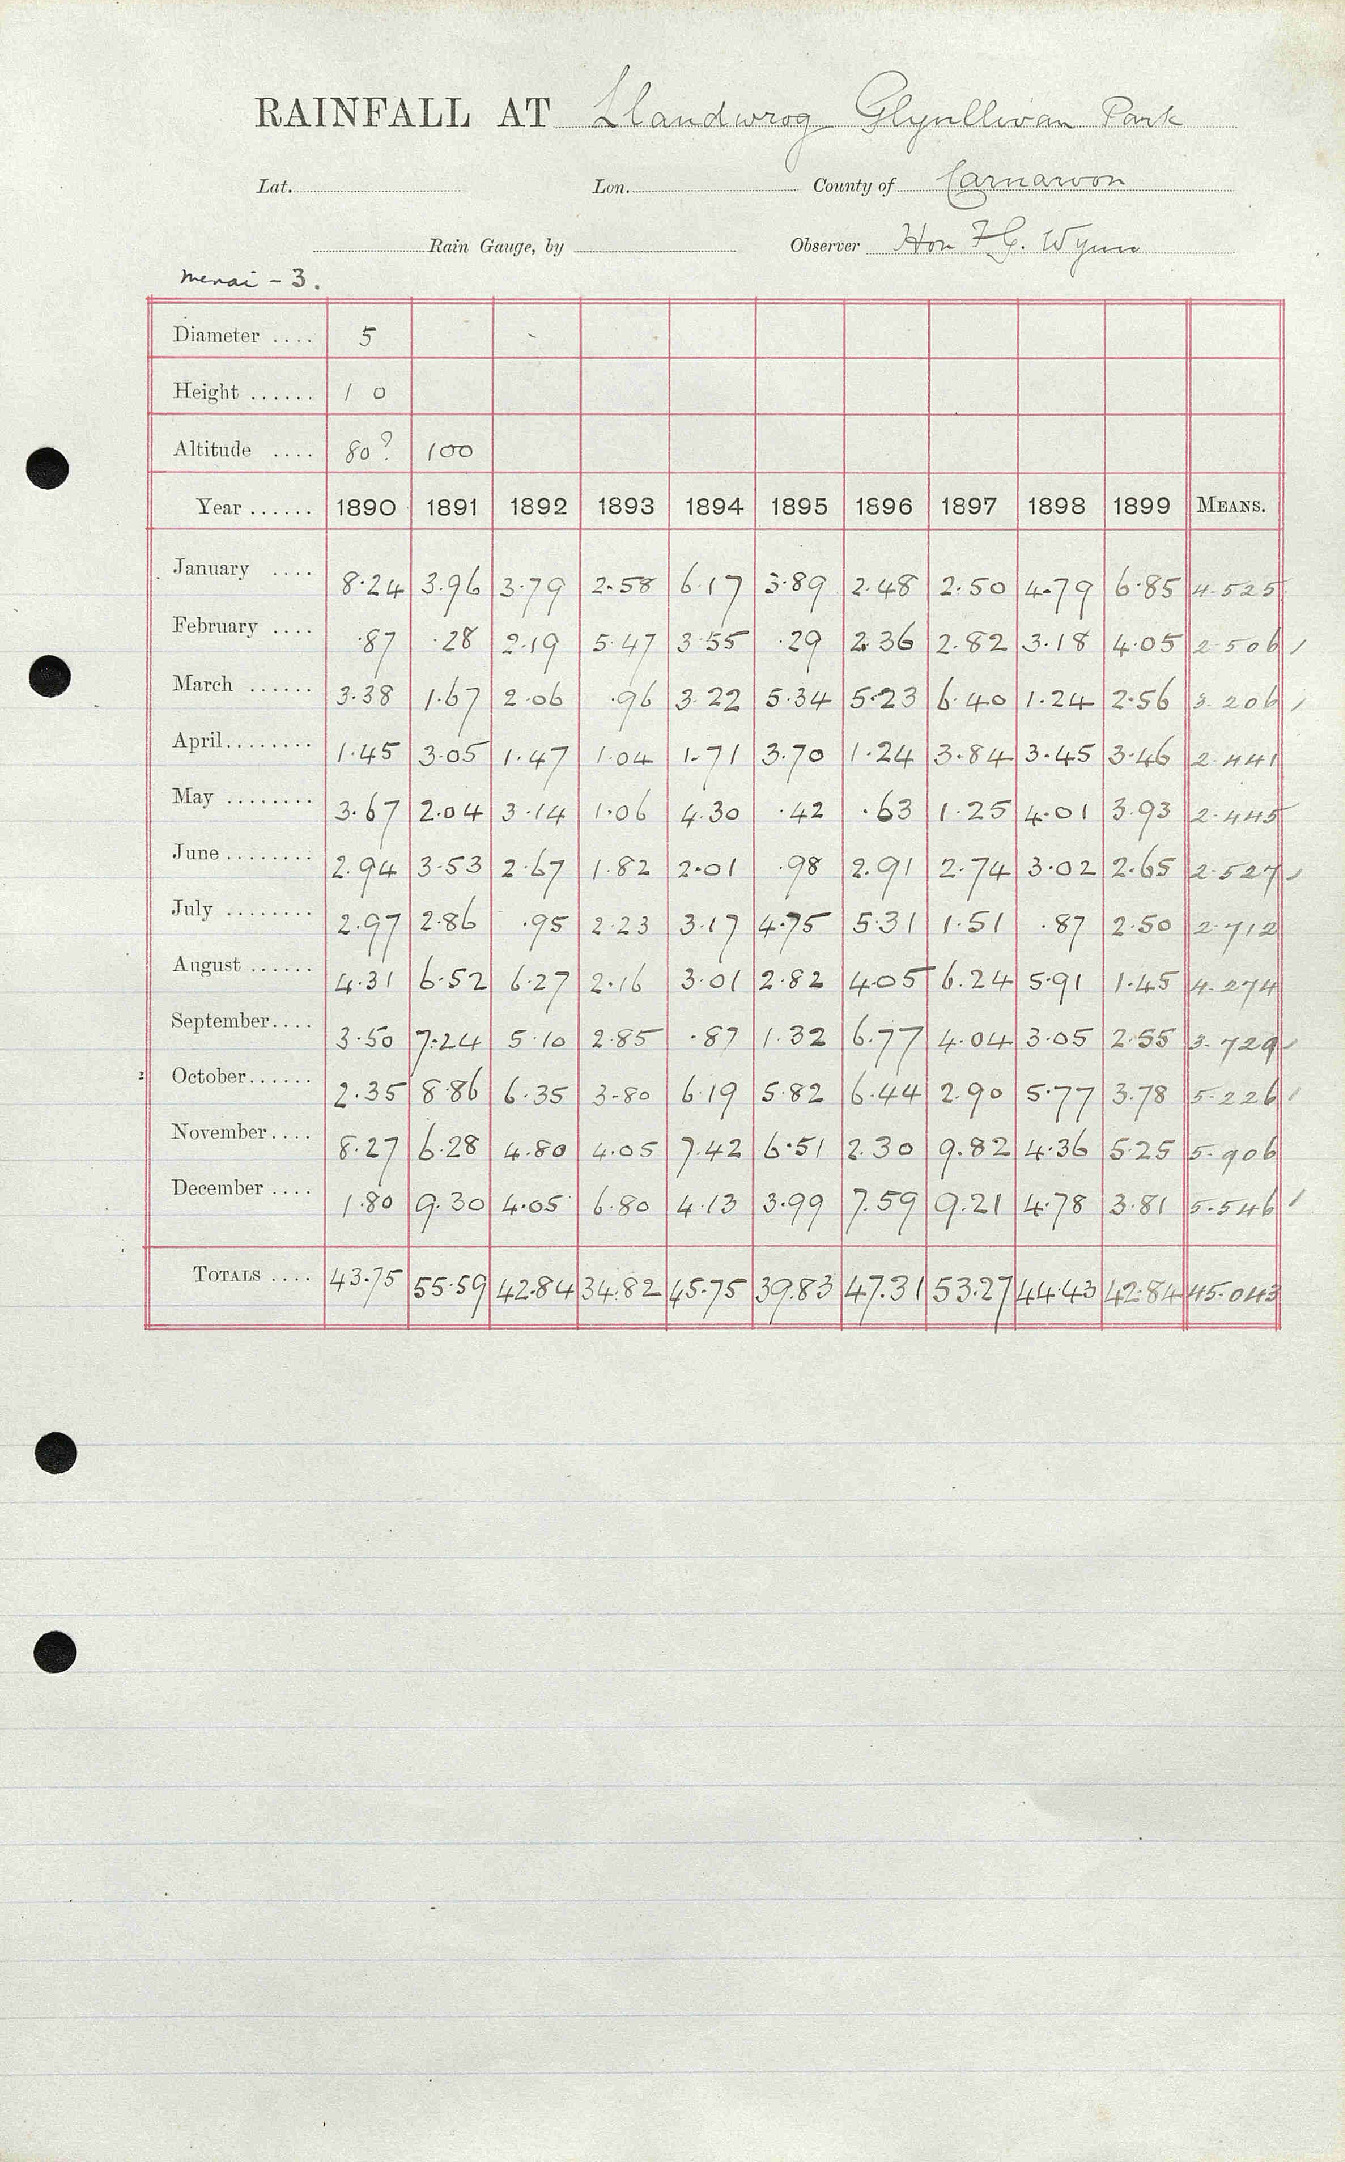 RAINFALL AT Llandwrog Glynllivan Park
Lat. Lon. County of Carnarvon
Rain Gauge, by Observer Hon F.G. Wynn
Menai - 3.
Diameter .... 5
Height ...... 1 0
Altitude .... 80? 100
Year ...... 1890 1891 1892 1893 1894 1895 1896 1897 1898 1899 MEANS.
January .... 8.24 3.96 3.79 2.58 6.17 3.89 2.48 2.50 4.79 6.85 4.525
February .... .87 .28 2.19 5.47 3.55 .29 2.36 2.82 3.18 4.05 2.506
March ...... 3.38 1.67 2.06 .96 3.22 5.34 5.23 6.40 1.24 2.56 3.206
April........ 1.45 3.05 1.47 1.04 1.71 3.70 1.24 3.84 3.45 3.46 2.441
May ........ 3.67 2.04 3.14 1.06 4.30 .42 .63 1.25 4.01 3.93 2.445
June........ 2.94 3.53 2.67 1.82 2.01 .98 2.91 2.74 3.02 2.65 2.527
July ........ 2.97 2.86 .95 2.23 3.17 4.75 5.31 1.51 .87 2.50 2.712
August ...... 4.31 6.52 6.27 2.16 3.01 2.82 4.05 6.24 5.91 1.45 4.274
September.... 3.50 7.24 5.10 2.85 .87 1.32 6.77 4.04 3.05 2.55 3.729
October...... 2.35 8.86 6.35 3.80 6.19 5.82 6.44 2.90 5.77 3.78 5.226
November.... 8.27 6.28 4.80 4.05 7.42 6.51 2.30 9.82 4.36 5.25 5.906
December .... 1.80 9.30 4.05 6.80 4.13 3.99 7.59 9.21 4.78 3.81 5.546
TOTALS .... 43.75 55.59 42.84 34.82 45.75 39.83 47.31 53.27 44.43 42.84 45.043